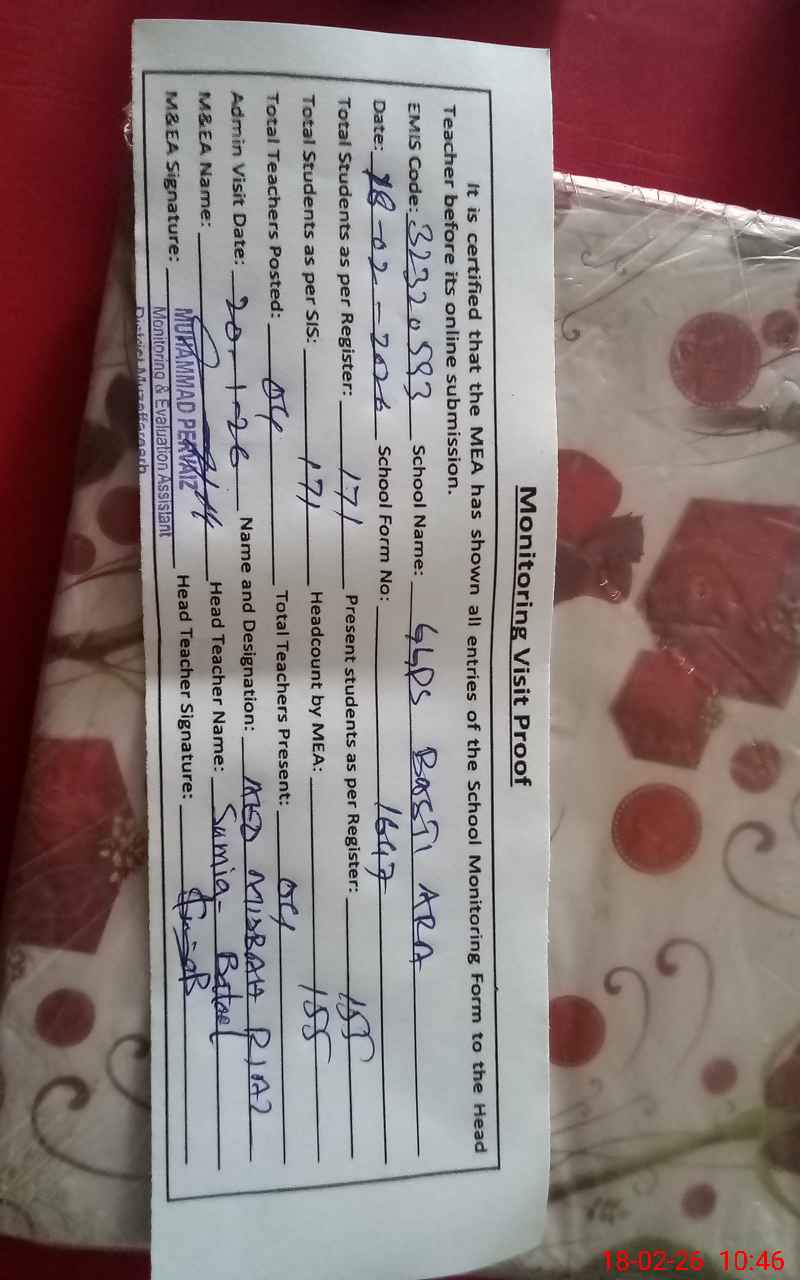 Monitoring Visit Proof
It is certified that the MEA has shown all entries of the School Monitoring Form to the Head
Teacher before its online submission.
EMIS Code: 32320593 School Name: GGPS BASTI ARA
Date: 18-02-2026 School Form No: 1647
Total Students as per Register: 171 Present students as per Register: 155
Total Students as per SIS: 171 Headcount by MEA: 155
Total Teachers Posted: 04 Total Teachers Present: 04
Admin Visit Date: 20-1-26 Name and Designation: AEO MISBAH RIAZ
M&EA Name: Head Teacher Name: Sumia Batool
M&EA Signature: Head Teacher Signature:
MUHAMMAD PERVAIZ
Monitoring & Evaluation Assistant
District Muzaffargarh
18-02-26 10:46